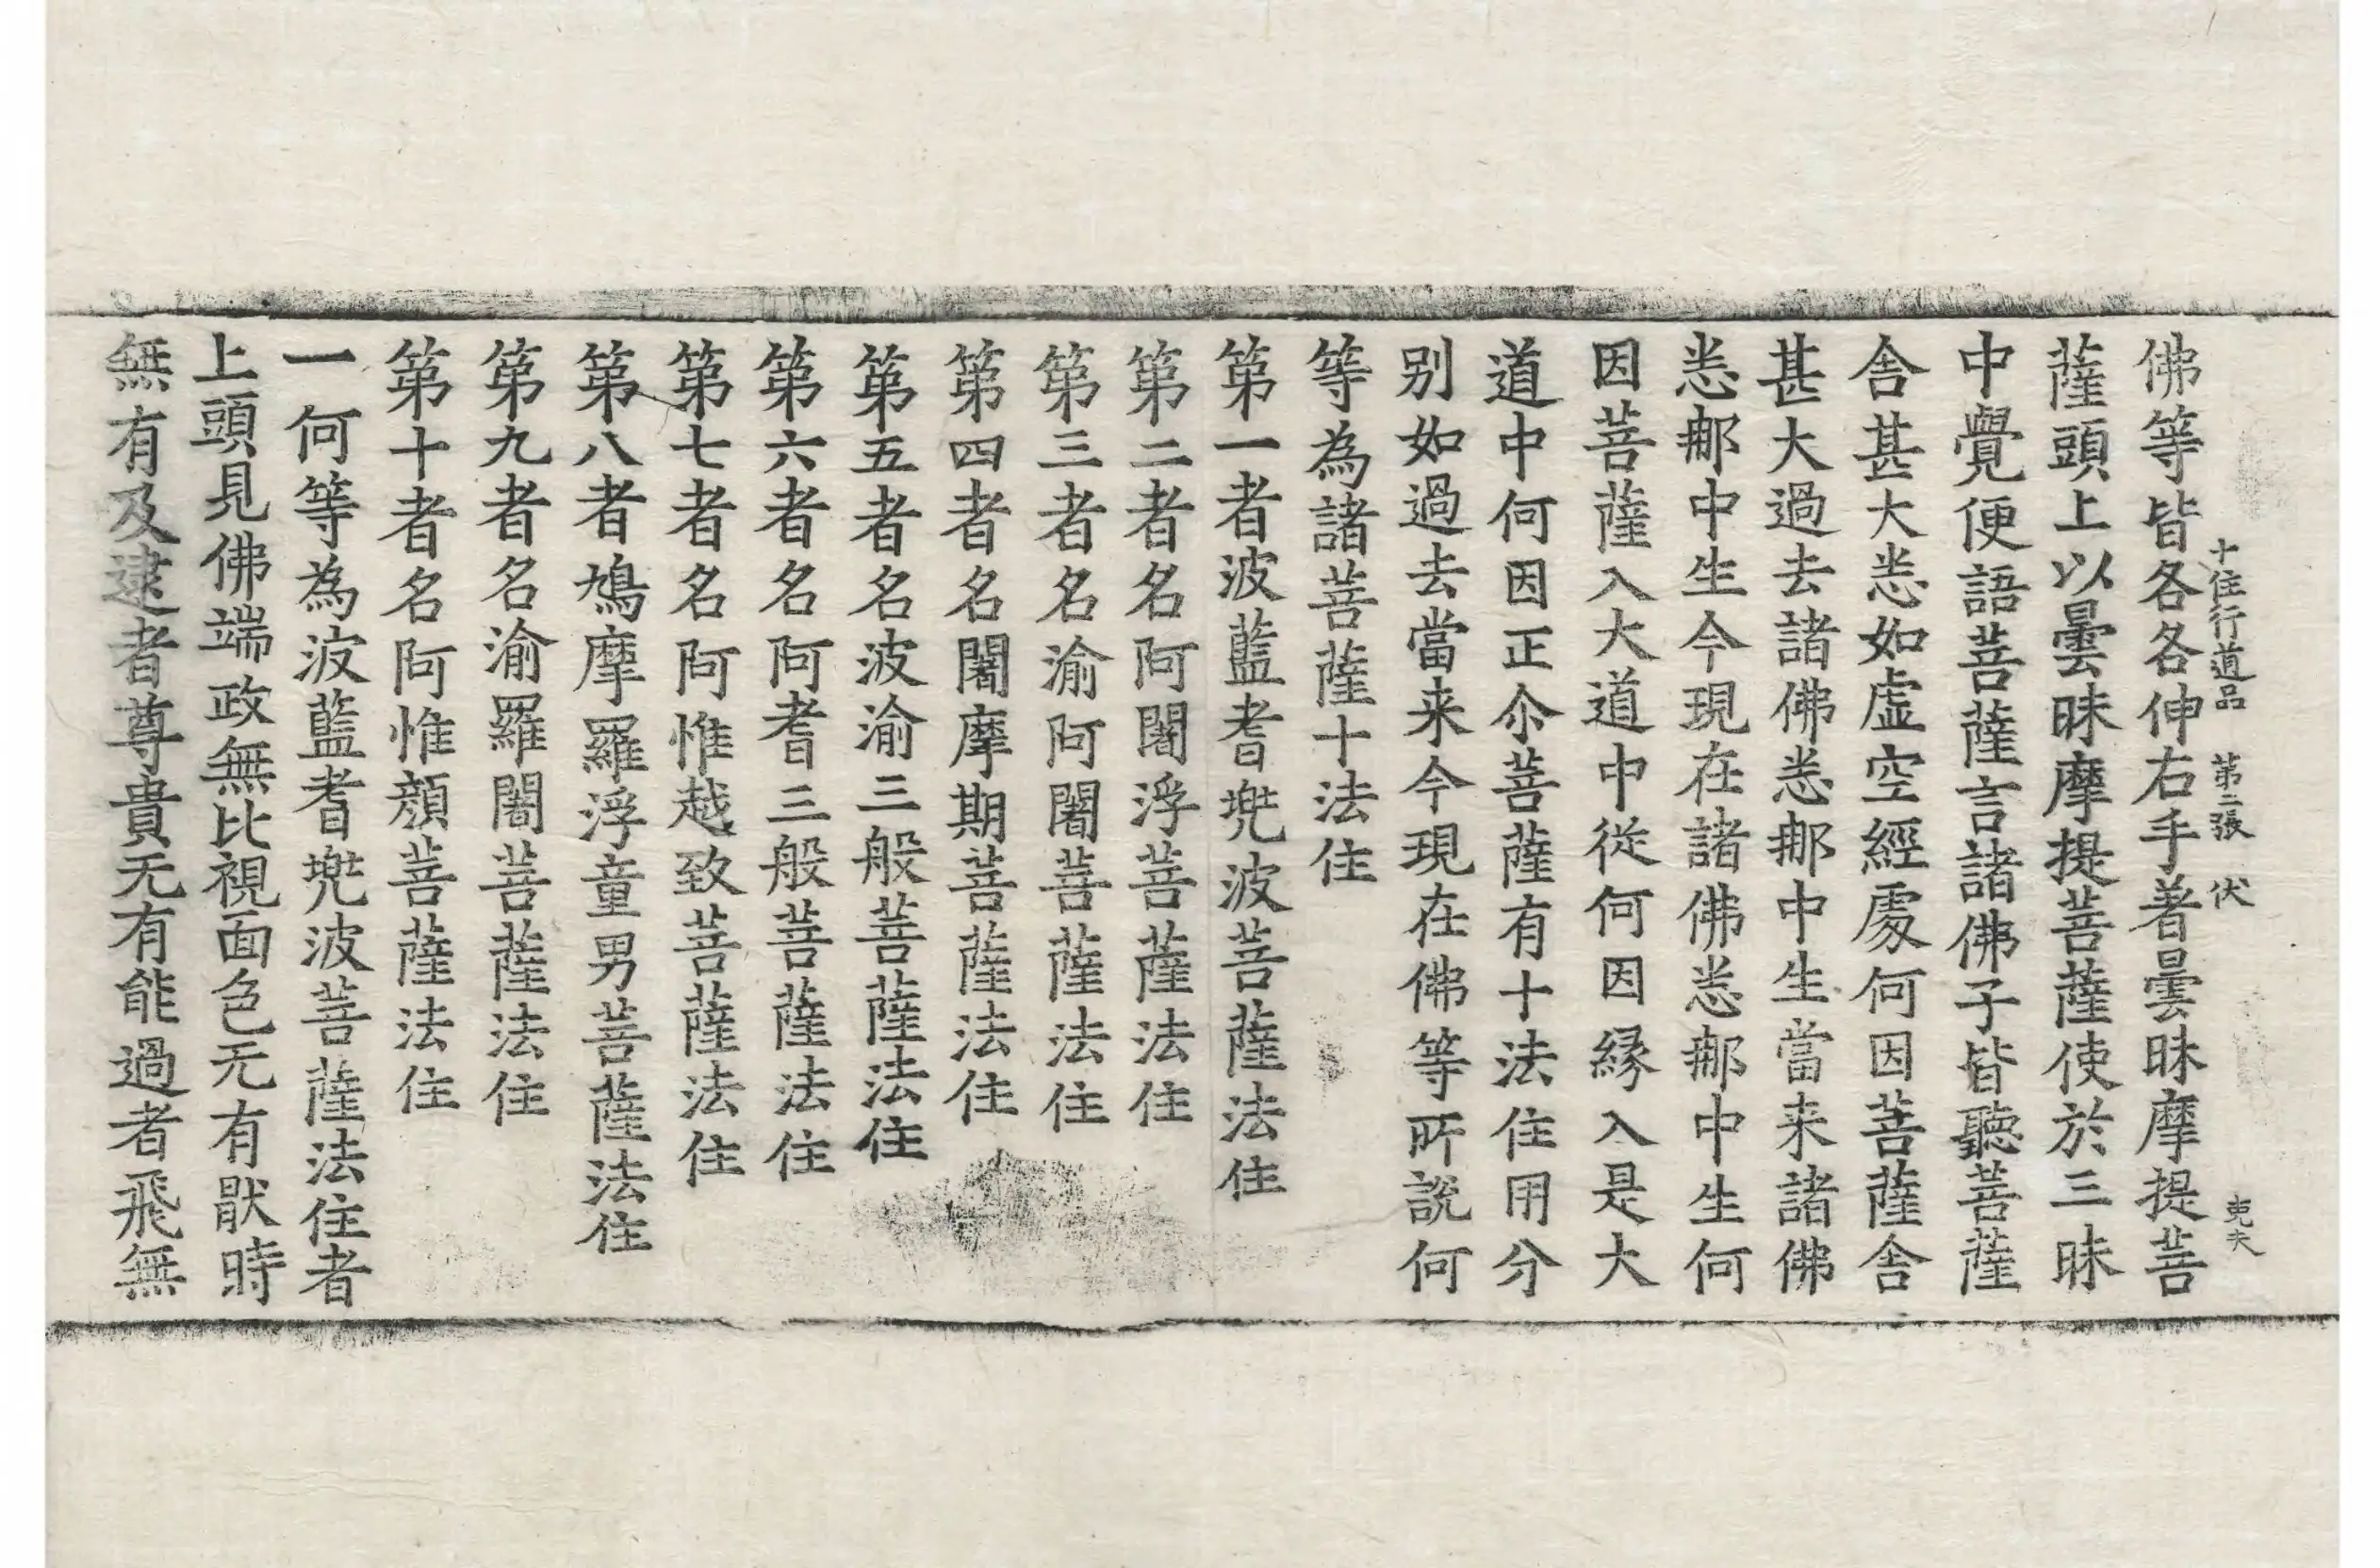 十住行道品　第二張　伏
佛等皆各各伸右手著曇昧摩提菩
薩頭上以曇昧摩提菩薩使於三昧
中覺便語菩薩言諸佛子皆聽菩薩
舍甚大悉如虛空經處何因菩薩舍
甚大過去諸佛悉那中生當来諸佛
悉那中生今現在諸佛悉那中生何
因菩薩入大道中從何因緣入是大
道中何因正尒菩薩有十法住用分
别如過去當来今現在佛等所說何
等為諸菩薩十法住
第一者波藍耆兜波菩薩法住
第二者名阿闍浮菩薩法住
第三者名渝阿闍菩薩法住
第四者名闍摩期菩薩法住
第五者名波渝三般菩薩法住
第六者名阿耆三般菩薩法住
第七者名阿惟越致菩薩法住
第八者鳩摩羅浮童男菩薩法住
第九者名渝羅闍菩薩法住
第十者名阿惟顏菩薩法住
一何等為波藍耆兜波菩薩法住者
上頭見佛端政無比視面色无有猒時
無有及逮者尊貴无有能過者飛無